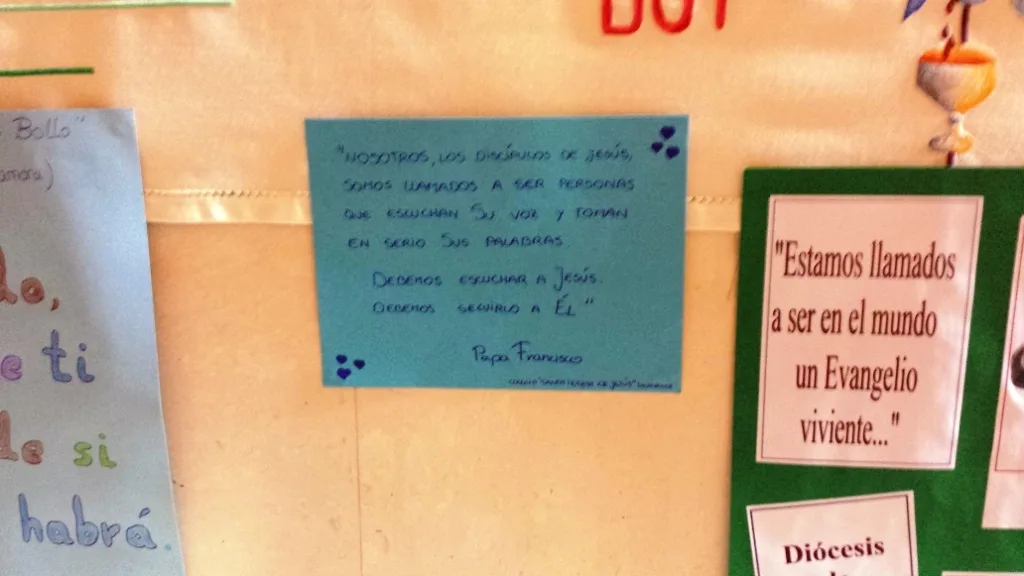 Bollo"
"NOSOTROS, LOS DISCÍPULOS DE JESÚS,
SOMOS LLAMADOS A SER PERSONAS
QUE ESCUCHAN SU VOZ Y TOMAN
EN SERIO SUS PALABRAS
DEBEMOS ESCUCHAR A JESÚS.
DEBEMOS SEGUIRLO A ÉL"
Papa Francisco
COLEGIO "SANTA TERESA DE JESÚS"
ti
de si
habrá.
"Estamos llamados
a ser en el mundo
un Evangelio
viviente..."
Diócesis